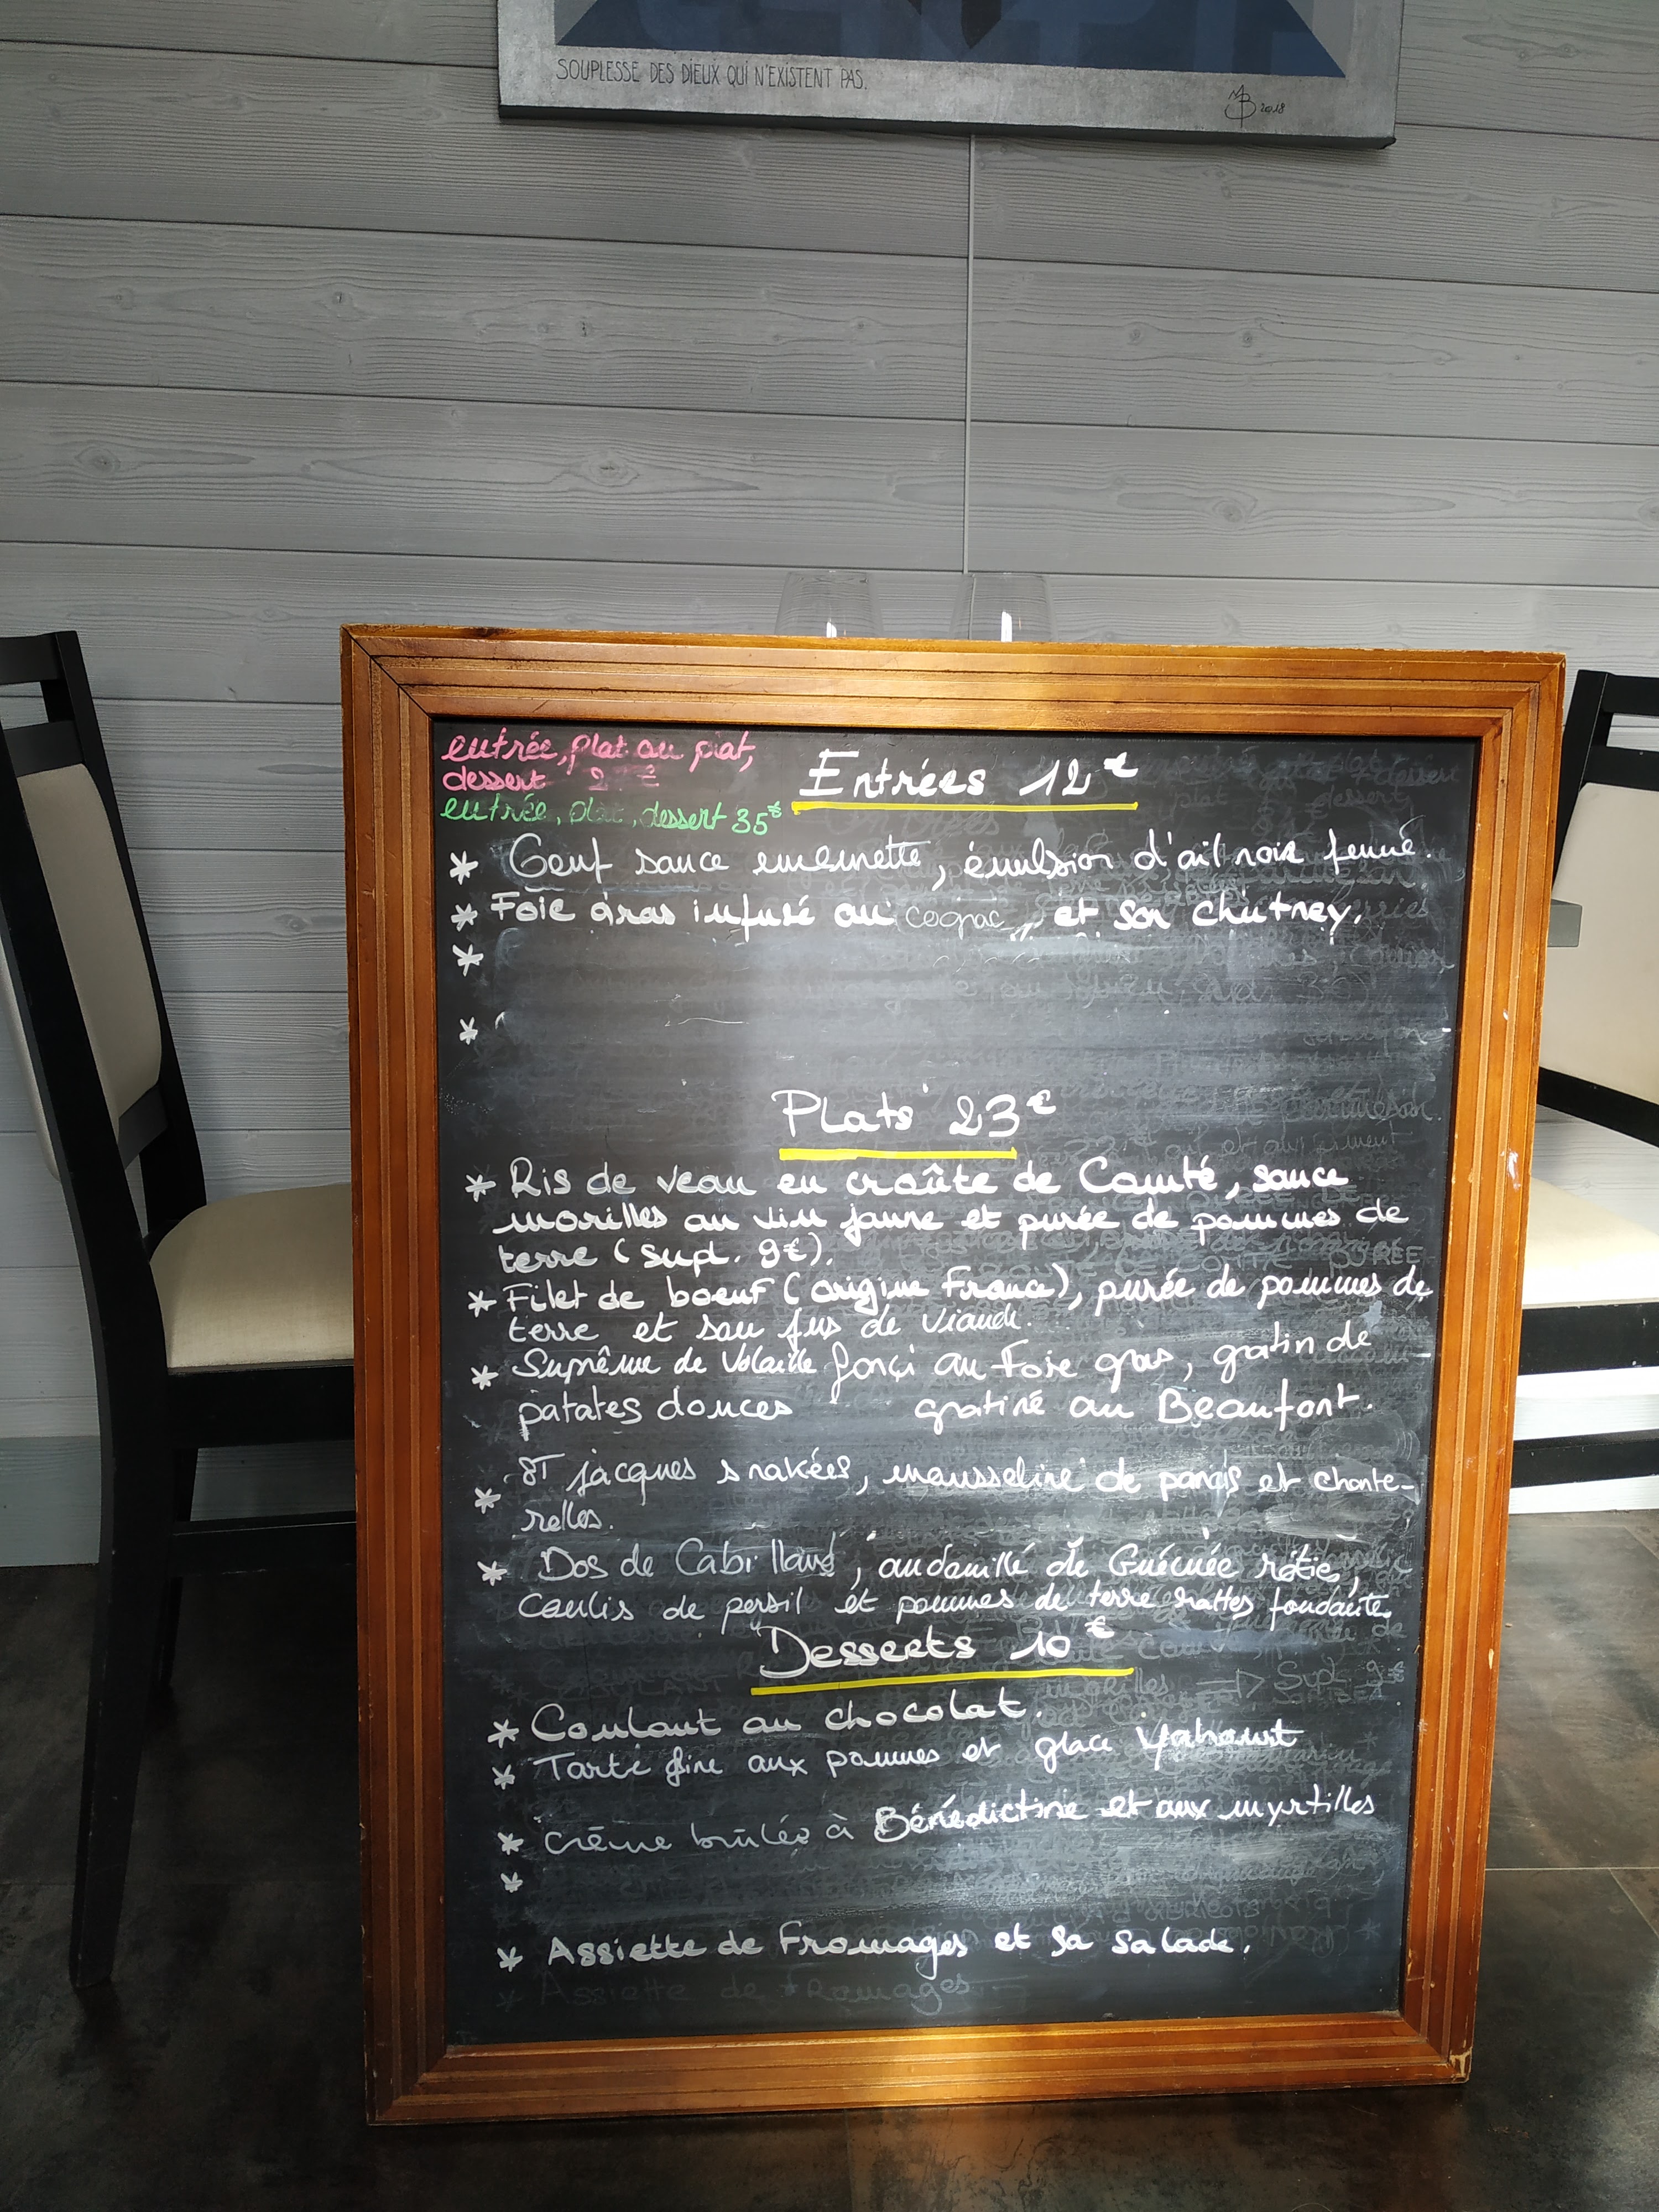 SOUPLESSE DES DIEUX QUI N'EXISTENT PAS.
2018
entrée, plat ou plat,
dessert 2 €
entrée, plat, dessert 35€
Entrées 12€
* Oeuf sauce emmenette, émulsion d'ail noir fumé.
* Foie Gras infusé au cognac, et son chutney.
*
*
Plats 23€
* Ris de veau en croûte de Comté, sauce
morilles au vin jaune et purée de pommes de
terre (supl. 9€).
* Filet de boeuf (origine France), purée de pommes de
terre et son jus de viande.
* Suprême de Volaille farçi au Foie gras, gratin de
patates douces gratiné au Beaufort.
* ST jacques snakées, mousseline de panais et chante-
relles.
* Dos de Cabillaud, andouille de Guémée rôtie,
Coulis de persil et pommes de terre rattes fondante
Desserts 10€
* Coulant au chocolat.
* Tarte fine aux pommes et glace Yahourt
* Crème brulée à Bénédictine et aux myrtilles
*
* Assiette de Fromages et sa salade.
* Assiette de Fromages